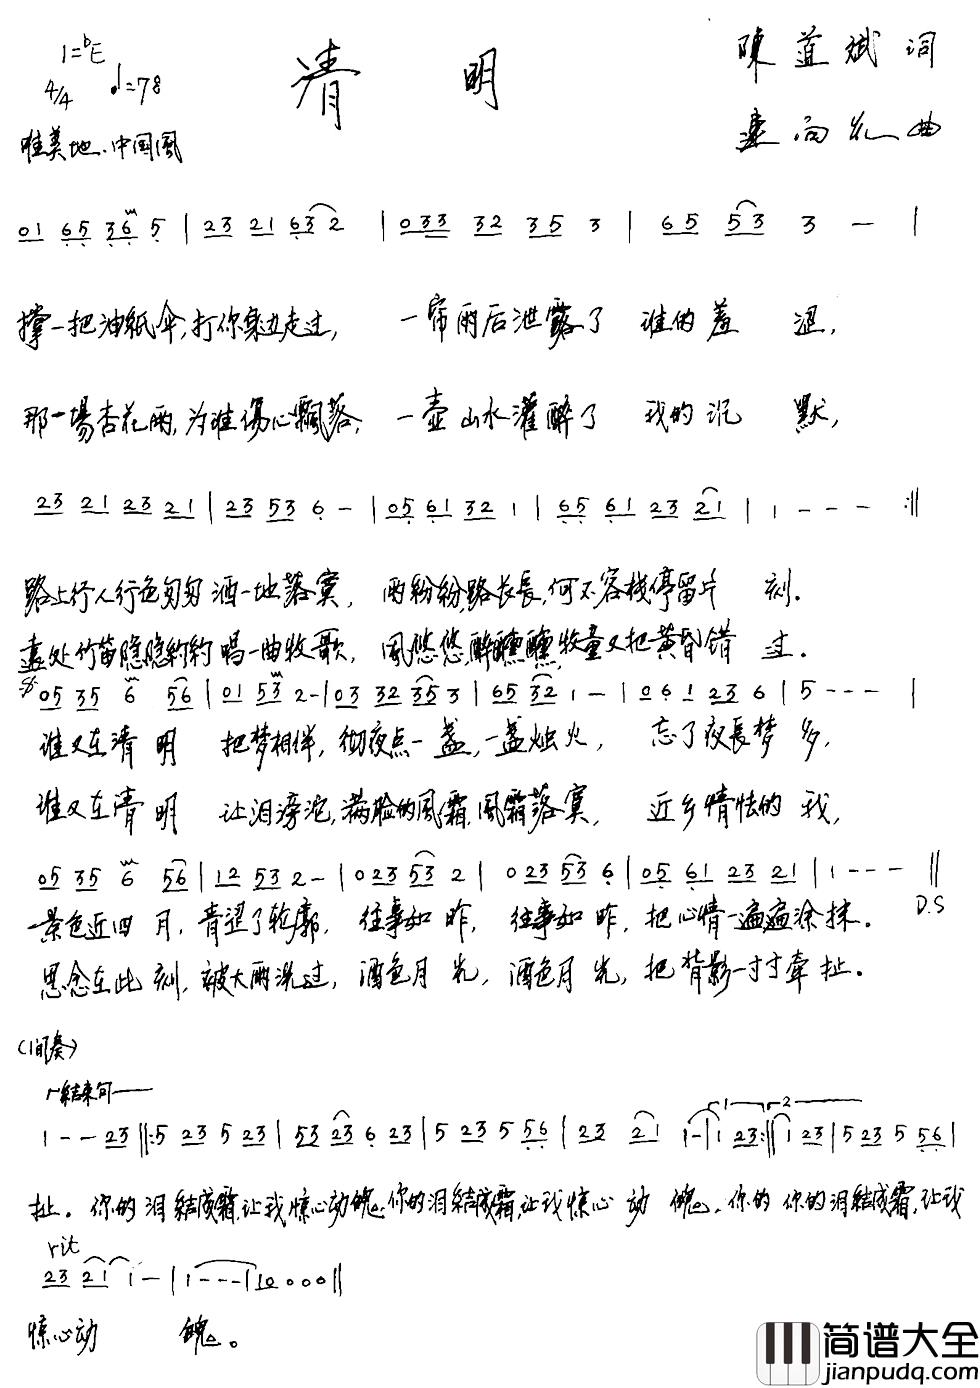 1=ᵇE
4/4 ♩=78
清 明
陳道斌 词
唯美地、中国風
向 曲
01 65 36 5 | 23 21 63 2 | 033 32 35 3 | 65 53 3 — |
撑一把油紙伞,打你身边走过, 一帘雨后泄露了 谁的羞 涩,
那一場杏花雨,为谁傷心飄落, 一壶山水灌醉了 我的沉 默,
23 21 23 21 | 23 53 6 - | 05 61 32 1 | 65 61 23 21 | 1 - - - :||
路上行人行色匆匆洒一地落寞, 雨粉粉,路长長,何不客栈停留片 刻.
远处竹笛隐隐约约唱一曲牧歌, 風悠悠,醉醺醺,牧童又把黄昏错 过.
05 35 6 56 | 01 53 2 - | 03 32 35 3 | 65 32 1 - | 06 1 23 6 | 5 - - - |
谁又在清 明 把梦相伴, 彻夜点一 盏,一盏烛火, 忘了夜長梦 多,
谁又在清 明 让泪滂沱,满脸的風霜,風霜落寞, 近乡情怯的 我,
05 35 6 56 | 12 53 2 - | 023 53 2 | 023 53 6 | 05 61 23 21 | 1 - - - ||
D.S
景色近四 月, 青涩了轮廓, 往事如 昨, 往事如 昨,把心情一遍遍涂抹.
思念在此 刻,被大雨洗过, 酒色月 光, 酒色月 光,把背影一寸寸牵 扯.
(间奏)
结束句
1 - - 23 ||: 5 23 5 23 | 53 23 6 23 | 5 23 5 56 | 23 21 1 - | 1 23 :|| 1 23 | 5 23 5 56 |
1 2
扯. 你的泪結成霜,让我惊心动魄,你的泪結成霜,让我惊心 动 魄,你的 你的泪結成霜,让我
rit
23 21 1 - | 1 - - - | 10 0 0 0 ||
惊心动 魄。
简谱大全
jianpudq.com